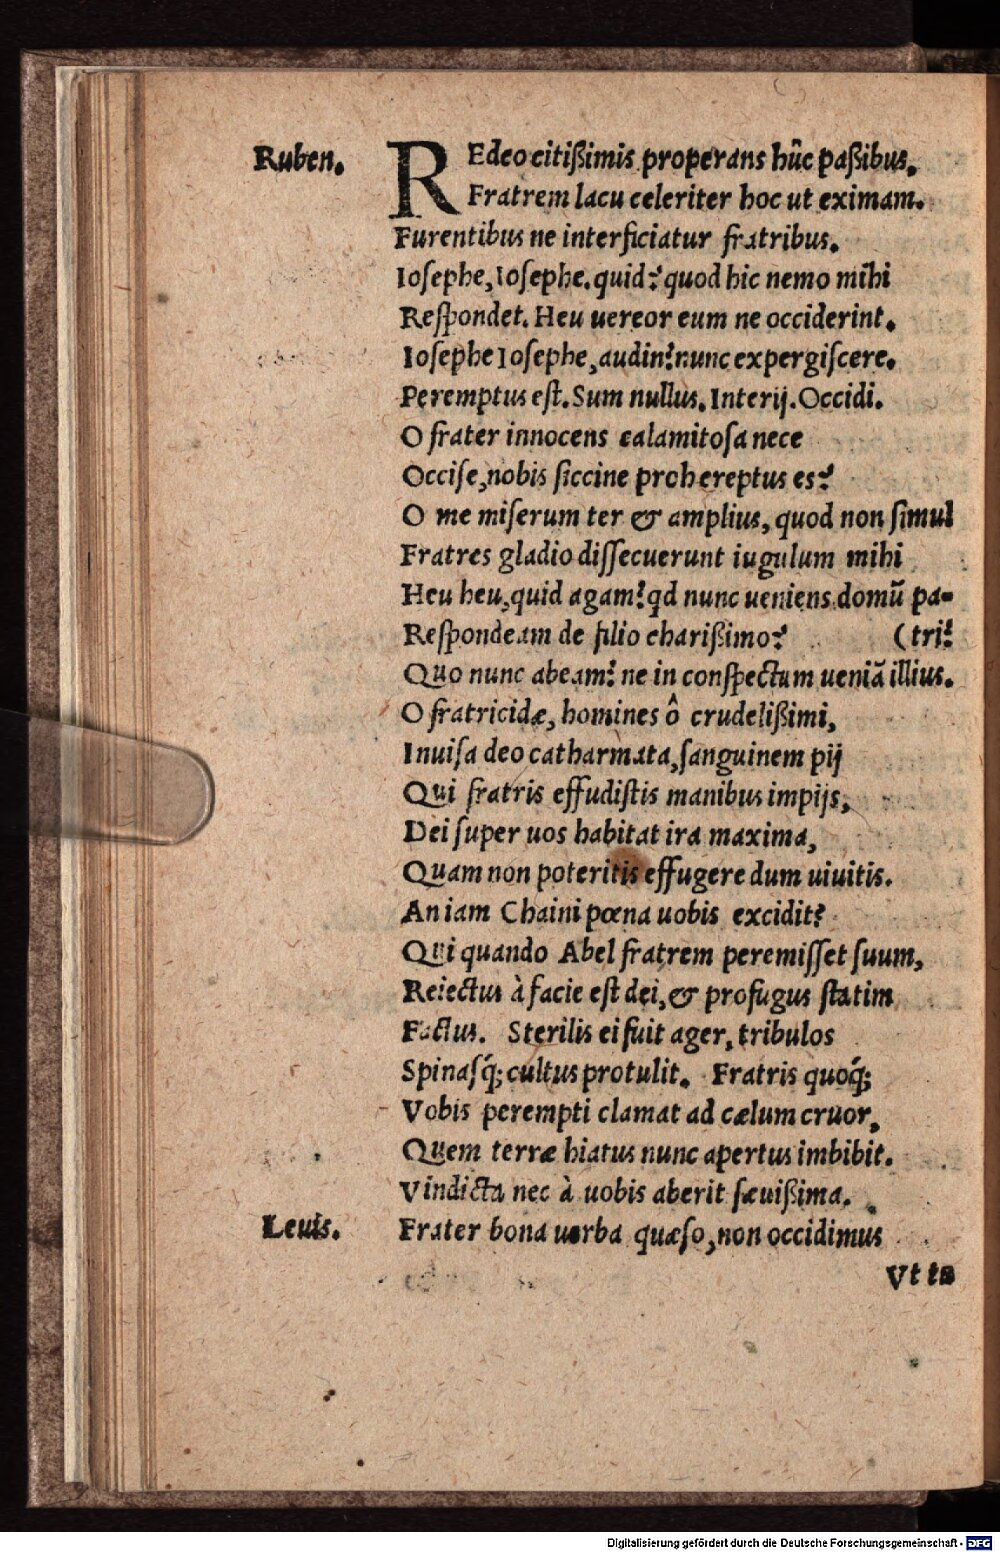 Ruben. REdeo citißimis properans hûc paßibus,
Fratrem lacu celeriter hoc ut eximam.
Furentibus ne interficiatur fratribus.
Iosephe, Iosephe. quid? quod hic nemo mihi
Respondet. Heu uereor eum ne occiderint.
Iosephe Iosephe, audin? nunc expergiscere.
Peremptus est. Sum nullus. Interij. Occidi.
O frater innocens calamitosa nece
Occise, nobis siccine proh ereptus es?
O me miserum ter & amplius, quod non simul
Fratres gladio dissecuerunt iugulum mihi
Heu heu, quid agam? qd nunc ueniens domū pa-
Respondeam de filio charißimo? (tri?
Quo nunc abeam? ne in conspectum ueniā illius.
O fratricidæ, homines ô crudelißimi,
Inuisa deo catharmata, sanguinem pij
Qui fratris effudistis manibus impijs,
Dei super uos habitat ira maxima,
Quam non poteritis effugere dum uiuitis.
An iam Chaini pœna uobis excidit?
Qui quando Abel fratrem peremisset suum,
Reiectus à facie est dei, & profugus statim
Factus. Sterilis ei fuit ager, tribulos
Spinasq́; cultus protulit. Fratris quoq́;
Vobis perempti clamat ad cælum cruor,
Quem terræ hiatus nunc apertus imbibit.
Vindicta nec à uobis aberit sæuißima.
Leuis. Frater bona uerba quæso, non occidimus
Vt tu
Digitalisierung gefördert durch die Deutsche Forschungsgemeinschaft - DFG